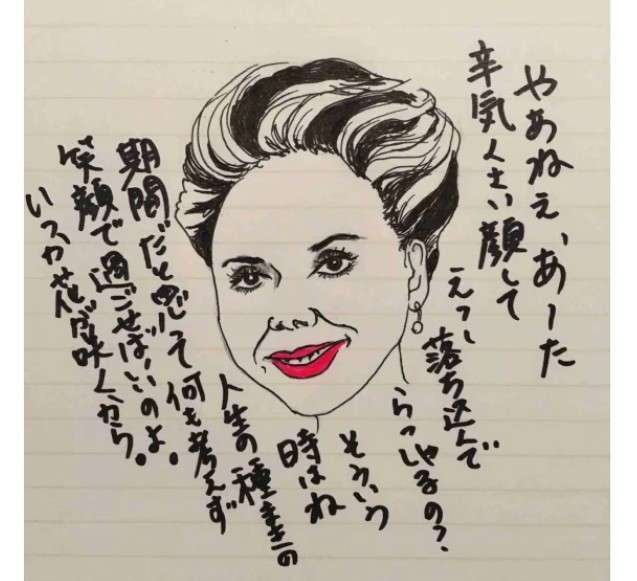 やあねえ、あーた
辛気くさい顔して
えっ、落ち込んで
らっしゃるの？
そういう
時はね
人生の種まきの
期間だと思って何も考えず
笑顔で過ごせばいいのよ。
いつか花が咲くから。